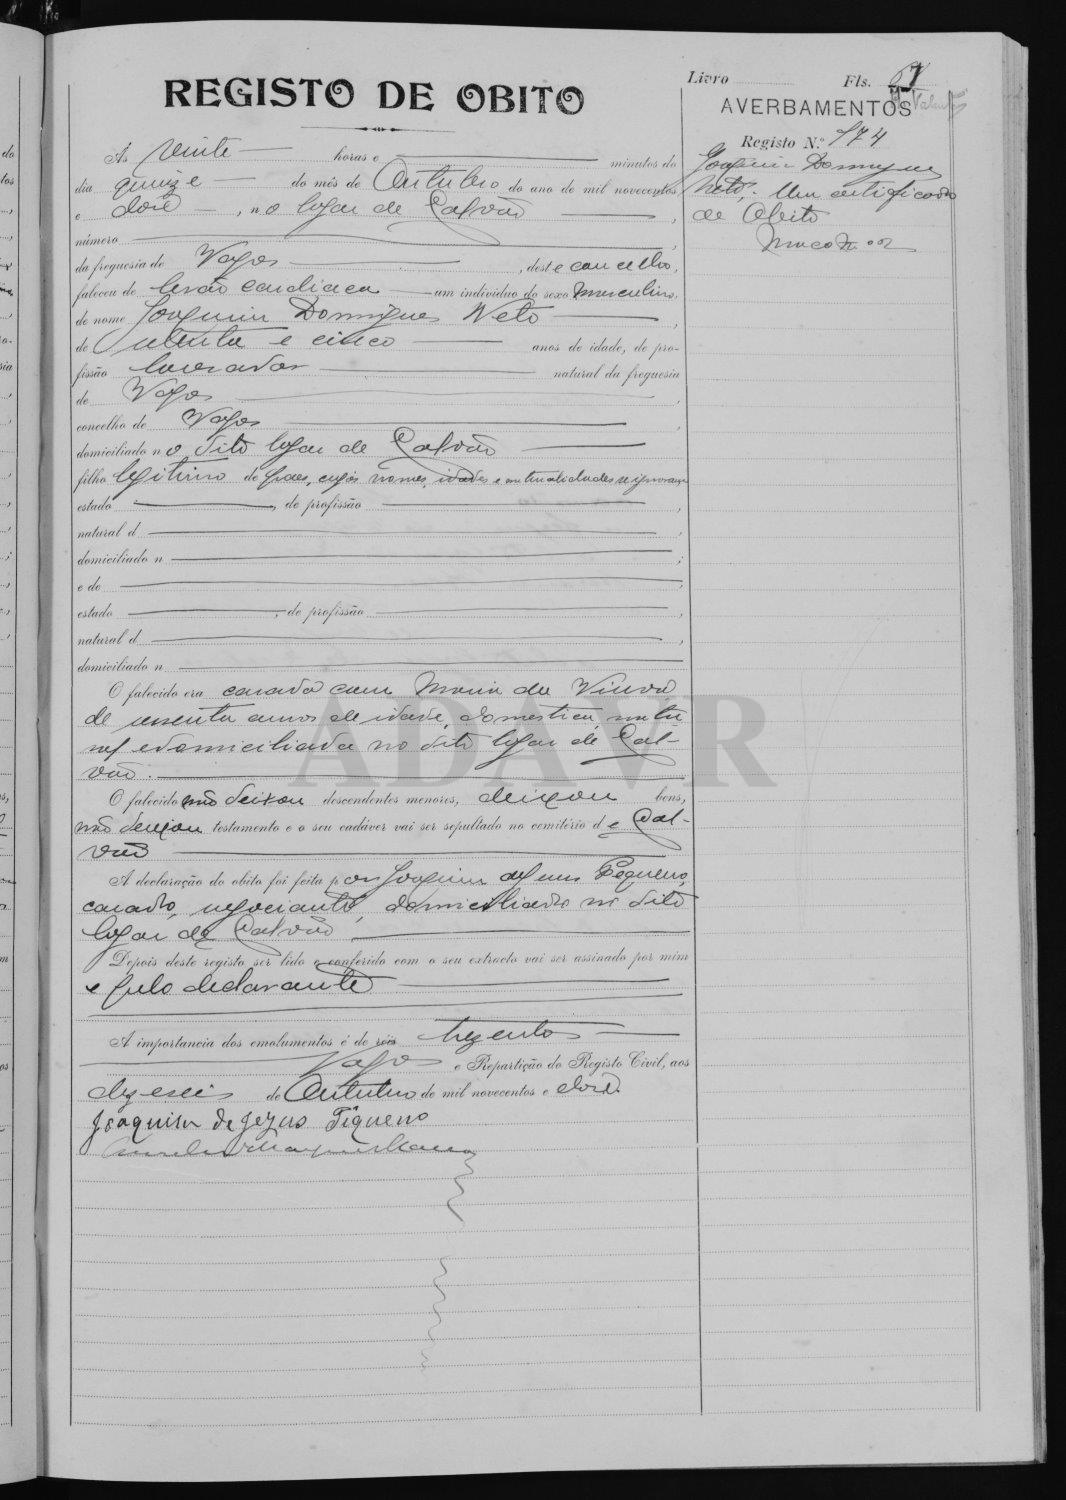 Livro Fls. 57
REGISTO DE OBITO
AVERBAMENTOS
Registo N.º 174
Joaquim Domingues
Neto. Um certificado
de Obito
Ás vinte horas e minutos do
dia quinze do mês de Outubro do ano de mil novecentos
e doze, no logar de Calvão,
número,
da freguesia de Vagos, deste concelho,
faleceu de lesão cardiaca um individuo do sexo masculino,
de nome Joaquim Domingues Neto,
de setenta e cinco anos de idade, de pro-
fissão lavrador natural da freguesia
de Vagos,
concelho de Vagos,
domiciliado no dito logar de Calvão
filho legitimo de paes, cujos nomes, idades e naturalidades se ignoram
estado, de profissão,
natural d,
domiciliado n;
e de,
estado, de profissão,
natural d,
domiciliado n
O falecido era casado com Maria de
de sessenta anos de idade, domestica, natu
ral e domiciliada no dito logar de Cal-
vão.
O falecido não deixou descendentes menores, deixou bens,
não deixou testamento e o seu cadáver vai ser sepultado no cemitério de Cal-
vão
A declaração do obito foi feita por Joaquim de Jesus Pequeno,
casado, negociante, domiciliado no dito
logar de Calvão
Depois deste registo ser lido e conferido com o seu extracto vai ser assinado por mim
e pelo declarante
A importancia dos emolumentos é de reis trezentos
Vagos e Repartição do Registo Civil, aos
dezeseis de Outubro de mil novecentos e doze.
Joaquim de Jezus Piqueno
ADAVR